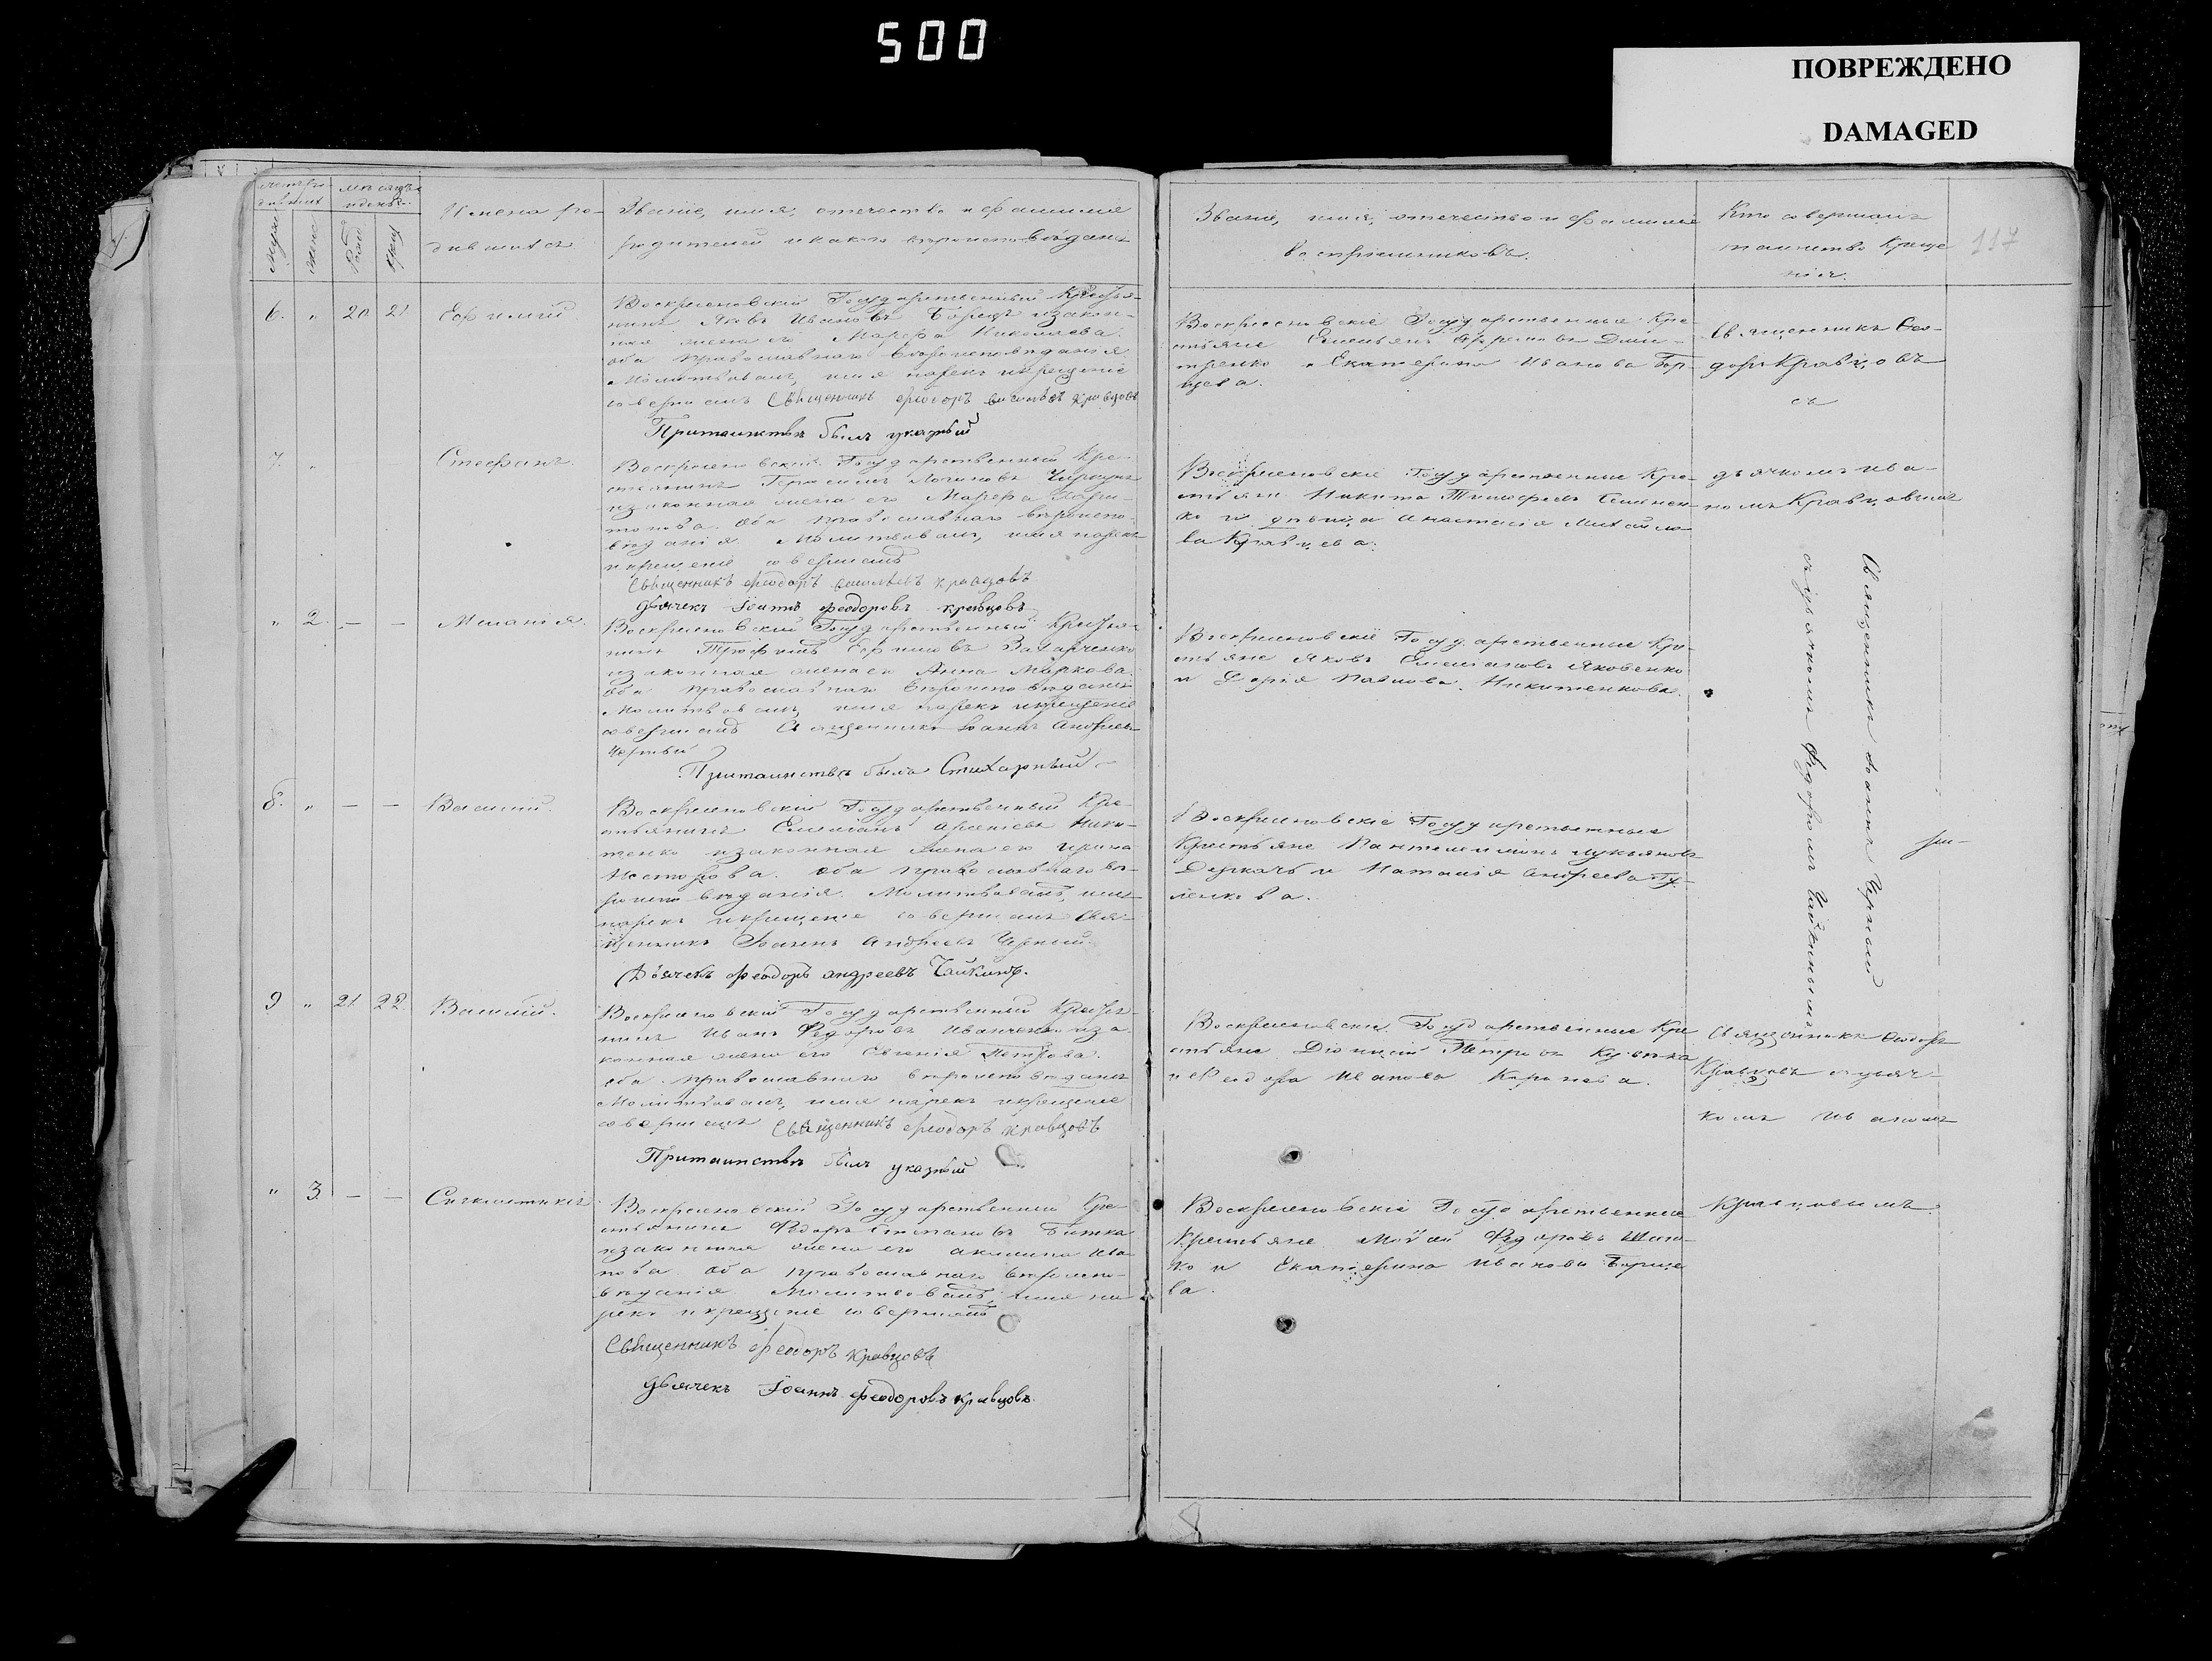 500
ПОВРЕЖДЕНО
DAMAGED
117
Имена ро-
дившихся
Званіе, имя, отечество и фамиліе
родителей и какого вѣроисповѣданія
Званіе, имя, отечество и фамиліе
воспріемниковъ.
Кто совершалъ
таинство креще
нія.
6. " 20 21 Евфимій.
Воскресеновскій Государственный Крестья-
нинъ Яковъ Ивановъ Борецъ и закон-
ная жена его Марфа Николаева.
оба православнаго вѣроисповѣданія
Молитвовалъ, имя нарекъ и крещеніе
совершалъ Священникъ Феодоръ Кравцовъ
При таинствѣ былъ указный
Воскресеновскіе Государственные Кре-
стьяне Емельянъ Ефремовъ Дми-
тренко и Екатерина Иванова Бор-
цева.
Священникъ Ѳео-
доръ Кравцовъ
съ
7. " Стефанъ.
Воскресеновскій Государственный Кре-
стьянинъ Герасимъ Логиновъ
и законная жена его Марфа
оба православнаго вѣроиспо-
вѣданія. Молитвовалъ, имя нарекъ
и крещеніе совершалъ
Священникъ Феодоръ Кравцовъ
Дьячекъ Іоаннъ Феодоровъ Кравцовъ
Воскресеновскіе Государственные Кре-
стьяне Никита Тимофеевъ Семенен-
ко и дѣвица Анастасія Михайло-
ва Кравцева.
дьячкомъ Ива-
номъ Кравцовымъ
" 2. — — Меланія.
Воскресеновскій Государственный Крестья-
нинъ Трофимъ Ефимовъ Захарченко
и законная жена его Анна Маркова.
Оба православнаго вѣроисповѣданія
Молитвовалъ, имя нарекъ и крещеніе
совершалъ Священникъ Іоаннъ Андреевъ
Черный
При таинствѣ былъ Стихарный
Воскресеновскіе Государственные Кре-
стьяне Яковъ Емеліановъ Яковенко
и Дарія Павлова Никитенкова.
Священникъ Іоаннъ Черный
съ дьячкомъ Федоромъ Чайкинымъ
8. " — — Василій.
Воскресеновскій Государственный Кре-
стьянинъ Емеліанъ Арсеніевъ Ники-
тенко и законная жена его Ирина
Нестерова. Оба православнаго вѣ-
роисповѣданія. Молитвовалъ, имя
нарекъ и крещеніе совершалъ Свя-
щенникъ Іоаннъ Андреевъ Черный.
Дьячекъ Феодоръ Андреевъ Чайкинъ.
Воскресеновскіе Государственные
Крестьяне Пантелеимонъ Лукьяновъ
Деркачъ и Наталія Андреева Гу-
ленкова.
9 " 21 22 Василій.
Воскресеновскій Государственный Крестья-
нинъ Иванъ Федоровъ Иванченко и за-
конная жена его Евгенія Петрова.
оба православнаго вѣроисповѣданія
Молитвовалъ, имя нарекъ и крещеніе
совершалъ Священникъ Феодоръ Кравцовъ
При таинствѣ былъ указный
Воскресеновскіе Государственные Кре
стьяне Діонисій Петровъ
и Феодора Иванова
Священникъ Ѳеодоръ
Кравцовъ съ дьяч-
комъ Иваномъ
" 3. — — Сигклитикія
Воскресеновскій Государственный Кре-
стьянинъ Федоръ Степановъ Битка
и законная жена его Акилина Ива-
нова Оба православнаго вѣроиспо-
вѣданія Молитвовалъ, имя на-
рекъ и крещеніе совершалъ
Священникъ Феодоръ Кравцовъ
Дьячекъ Іоаннъ Феодоровъ Кравцовъ.
Воскресеновскіе Государственные
Крестьяне Мойсей Федоровъ
и Екатерина Иванова Борце
ва.
Кравцовымъ.